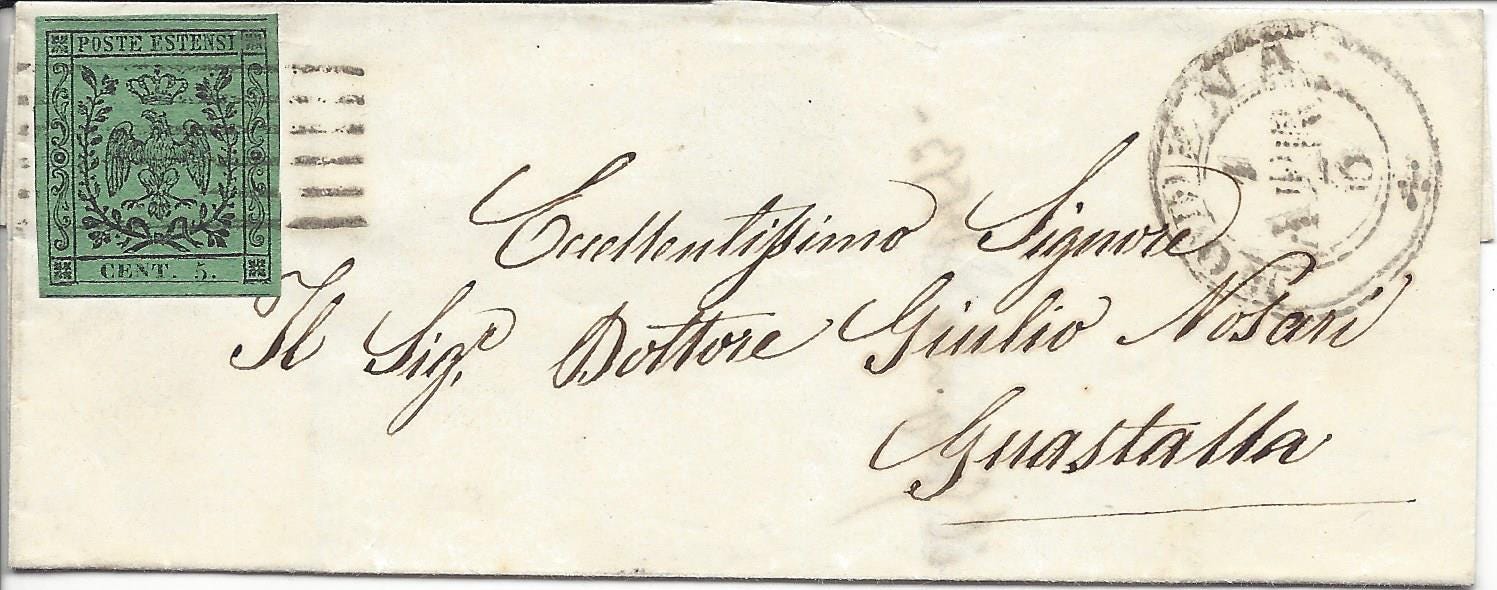 POSTE ESTENSI
CENT. 5.
MODENA
APR
Eccellentissimo Signore
Il Sigr. Dottore Giulio Nosari
Guastalla